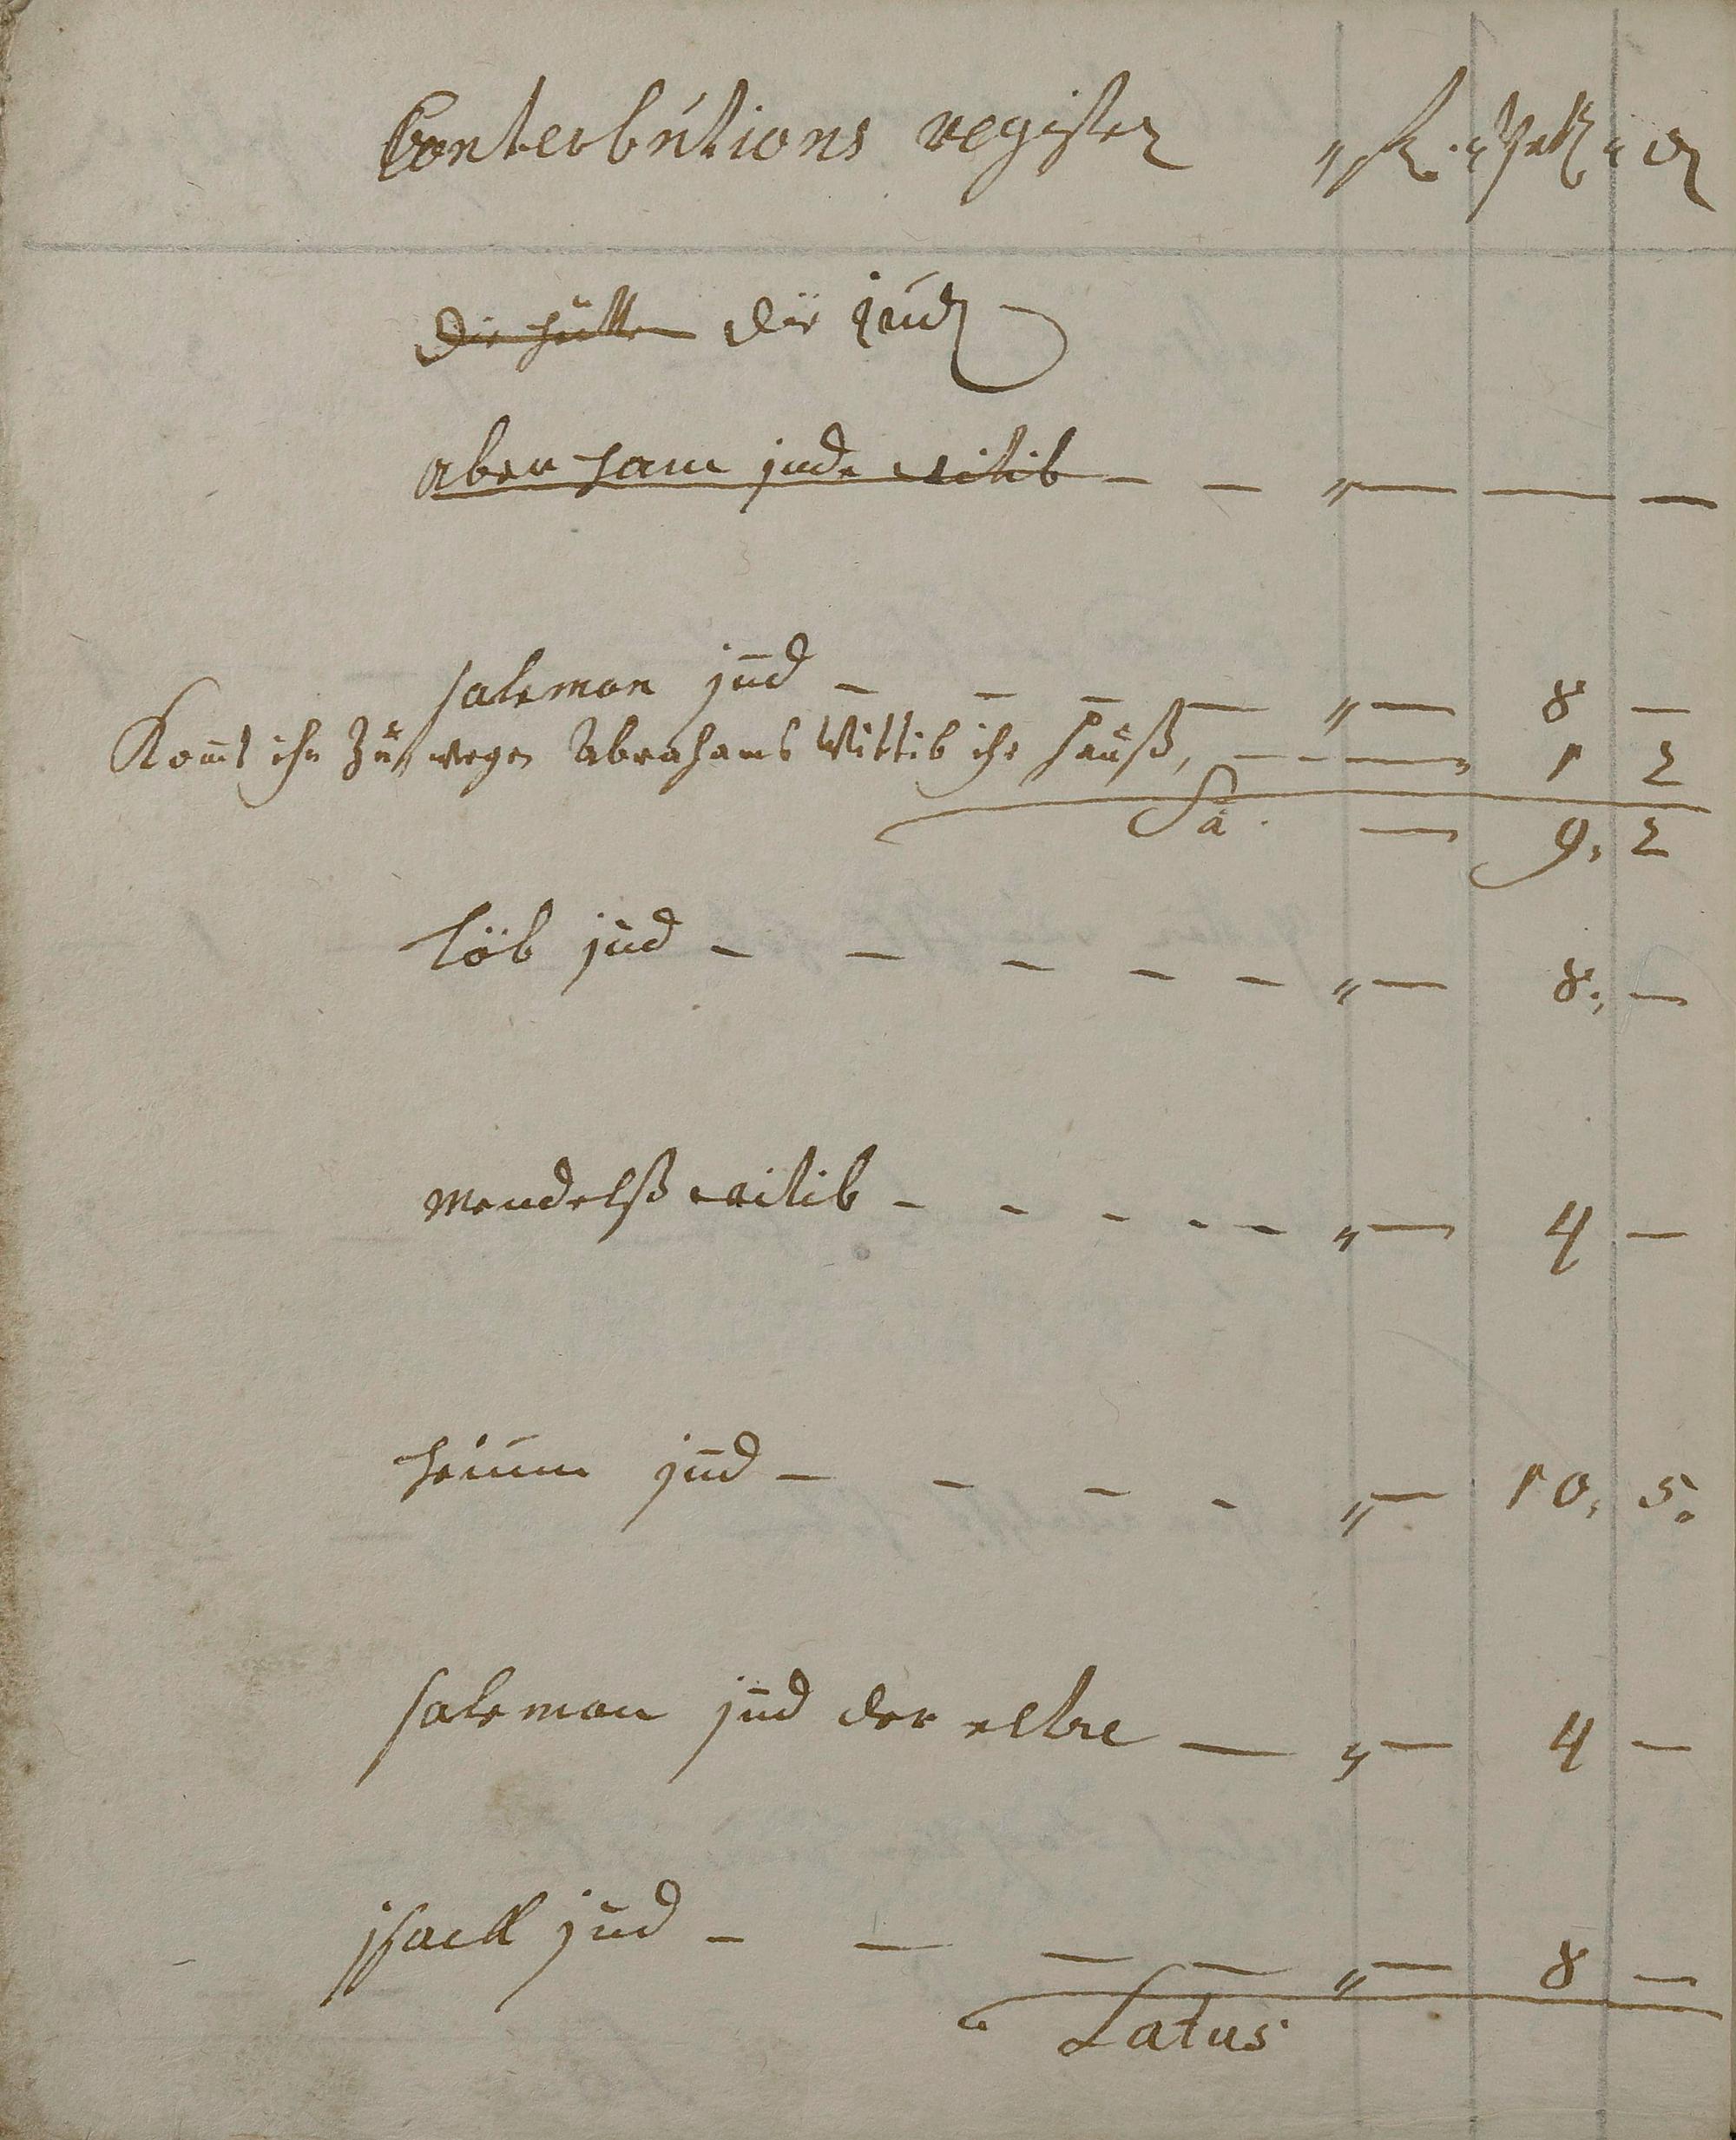 Conterbútions register " fl. " Patz " d
die hütten die Júd
aberham jude witib — — " — — —
saleman jud — — — — " — 8 —
Komt ihn zu, wegen Abrahams Wittib ihr hauß, — — — 1 2
Sa. — 9, 2
löb jud — — — — — " — 8, —
Mendelß witib — — — — — " — 4 —
heium jud — — — — " — 10, 5.
saleman jud der eltre — " — 4 —
jsack jud — — — — " — 8 —
Latus